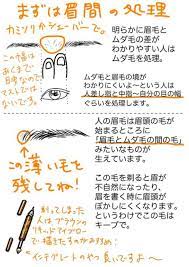 まずは眉間の処理
カミソリかシェーバーで。
この幅は
あくまで
目安なので
マストでは
ないです。
明らかに眉毛と
ムダ毛の差が
わかりやすい人は
ムダ毛を処理。
ムダ毛と眉毛の境が
わかりにくいよ〜という人は
人差し指と中指〜自分の目の幅
ぐらいを処理します。
この薄い毛を
残してね!
人の眉毛は眉頭の毛が
始まるところに
「眉毛とムダ毛の間の毛」
みたいなものが
生えています。
この毛を剃ると眉が
不自然になったり、
眉を書く時に眉頭が
ぼかしにくくなります。
というわけでこの毛は
キープで。
剃ってしまった
人はブラウンの
リキッドアイブロー
で1本ずつ
インテグレートのやつ良いですよ〜